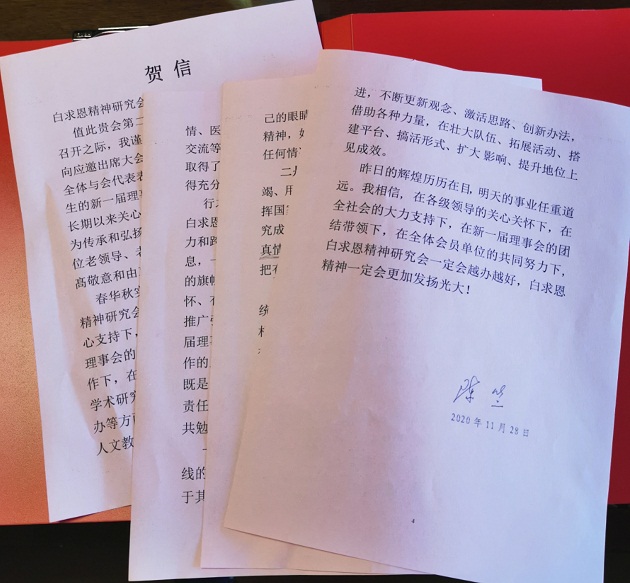 贺信
白求恩精神研究会
值此贵会第二
召开之际，我谨
向应邀出席大会
全体与会代表表
生的新一届理事
长期以来关心
为传承和弘扬
位老领导、老
高敬意和由
春华秋实
精神研究会
心支持下，
理事会的
作下，在
学术研究
办等方面
人文教
情、医
交流等
取得了
得充分
行
白求恩
力和跨
息，一
的旗帜
怀、有
推广
届理事
作的
既是
责任
共勉
线的
于其
己的眼睛
精神，如
任何情
二
竭、用
挥国
究成
真情
把
统
进，不断更新观念、激活思路、创新办法，
借助各种力量，在壮大队伍、拓展活动、搭
建平台、搞活形式、扩大影响、提升地位上
见成效。
昨日的辉煌历历在目，明天的事业任重道
远。我相信，在各级领导的关心关怀下，在
全社会的大力支持下，在新一届理事会的团
结带领下，在全体会员单位的共同努力下，
白求恩精神研究会一定会越办越好，白求恩
精神一定会更加发扬光大！
陈竺
2020年11月28日
4